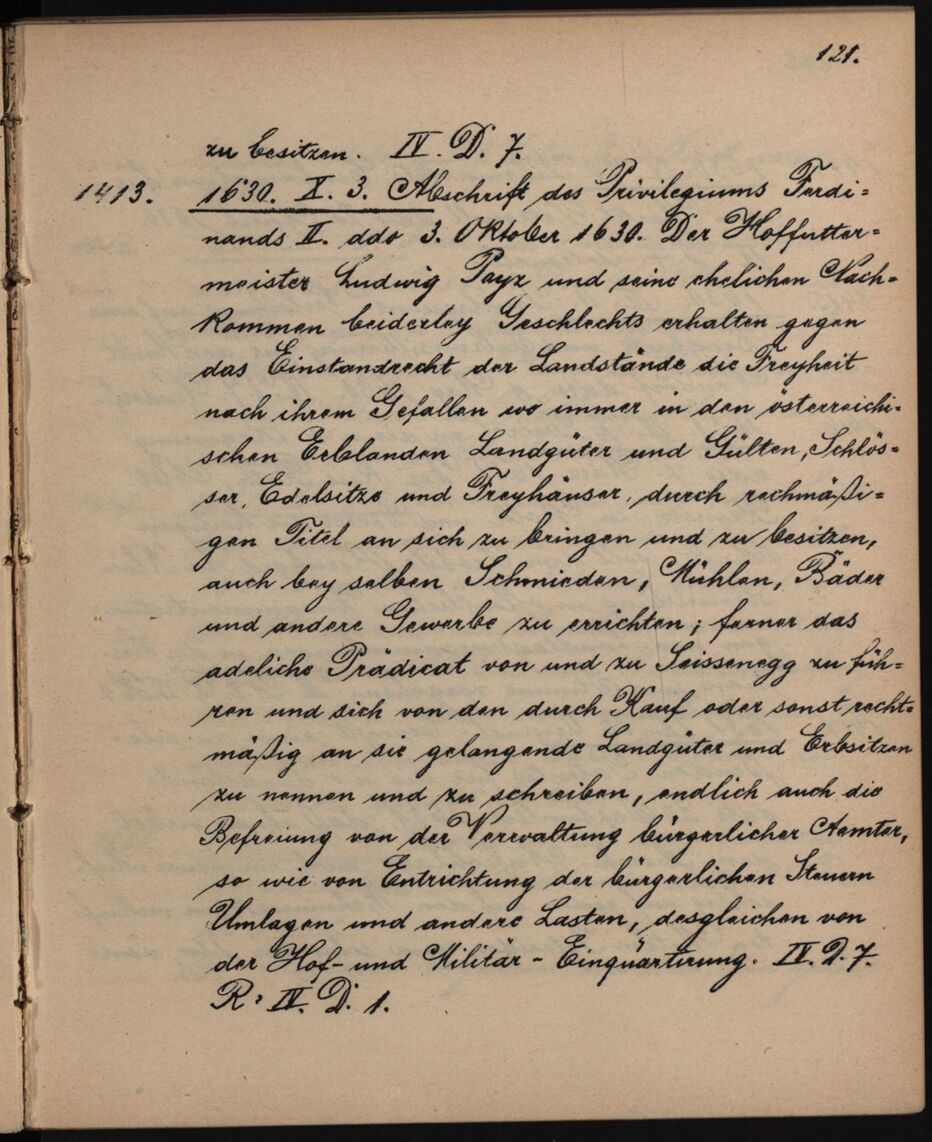 121.
zu besitzen. IV. D. 7.
1413. 1630. X. 3. Abschrift des Privilegiums Ferdi=
nands II. ddo 3. Oktober 1630. Der Hoffutter=
meister Ludwig Payr und seine ehelichen Nach=
kommen beiderley Geschlechts erhalten gegen
das Einstandrecht der Landstände die Freyheit
nach ihrem Gefallen wo immer in den österreichi=
schen Erblanden Landgüter und Gülten, Schlös=
ser, Edelsitze und Freyhäuser, durch rechmäßi=
gen Titel an sich zu bringen und zu besitzen,
auch bey selben Schmieden, Mühlen, Bäder
und andere Gewerbe zu errichten; ferner das
adeliche Prädicat von und zu Seissenegg zu füh=
ren und sich von den durch Kauf oder sonst recht=
mäßig an sie gelangende Landgüter und Erbsitzen
zu nennen und zu schreiben, endlich auch die
Befreiung von der Verwaltung bürgerlicher Aemter,
so wie von Entrichtung der bürgerlichen Steuern
Umlagen und andere Lasten, desgleichen von
der Hof- und Militär-Einquartirung. IV. D. 7.
R: IV. D. 1.